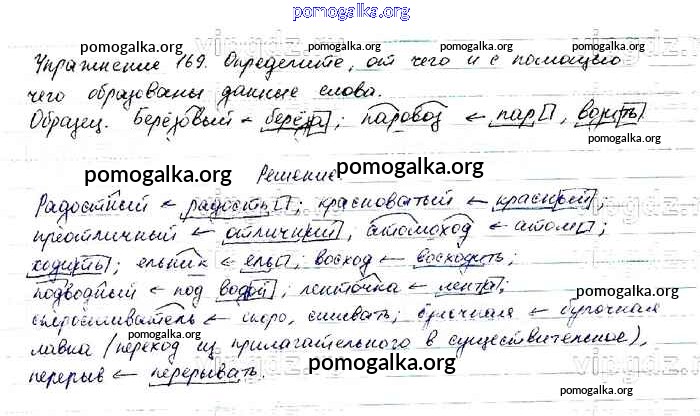 pomogalka.org
pomogalka.org pomogalka.org pomogalka.org
Упражнение 169. Определите, от чего и с помощью
чего образованы данные слова.
Образец. Берёзовый ← берёза; паровоз ← пар, возить
pomogalka.org pomogalka.org
pomogalka.org Решение pomogalka.org
Радостный ← радость; красноватый ← красный;
преотличный ← отличный, атомоход ← атом;
pomogalka.org pomogalka.org
ходить; ельник ← ель; восход ← восходить;
подводный ← под водой; ленточка ← лента;
pomogalka.org pomogalka.org
скоросшиватель ← скоро, сшивать; булочная ← булочная
лавка (переход из прилагательного в существительное),
pomogalka.org pomogalka.org
перерыв ← перерывать.
pomogalka.org